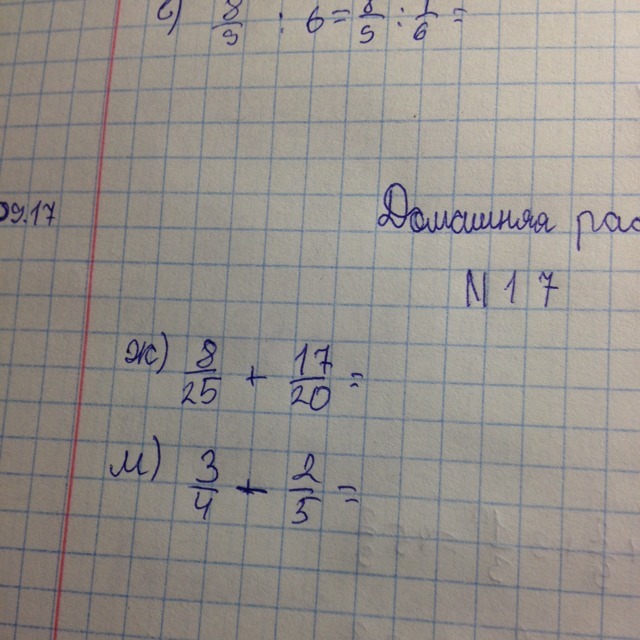 е) 8/9 : 6 = 8/9 : 1/6 =
09.17
Домашняя
N 17
ж) 8/25 + 17/20 =
м) 3/4 - 2/3 =